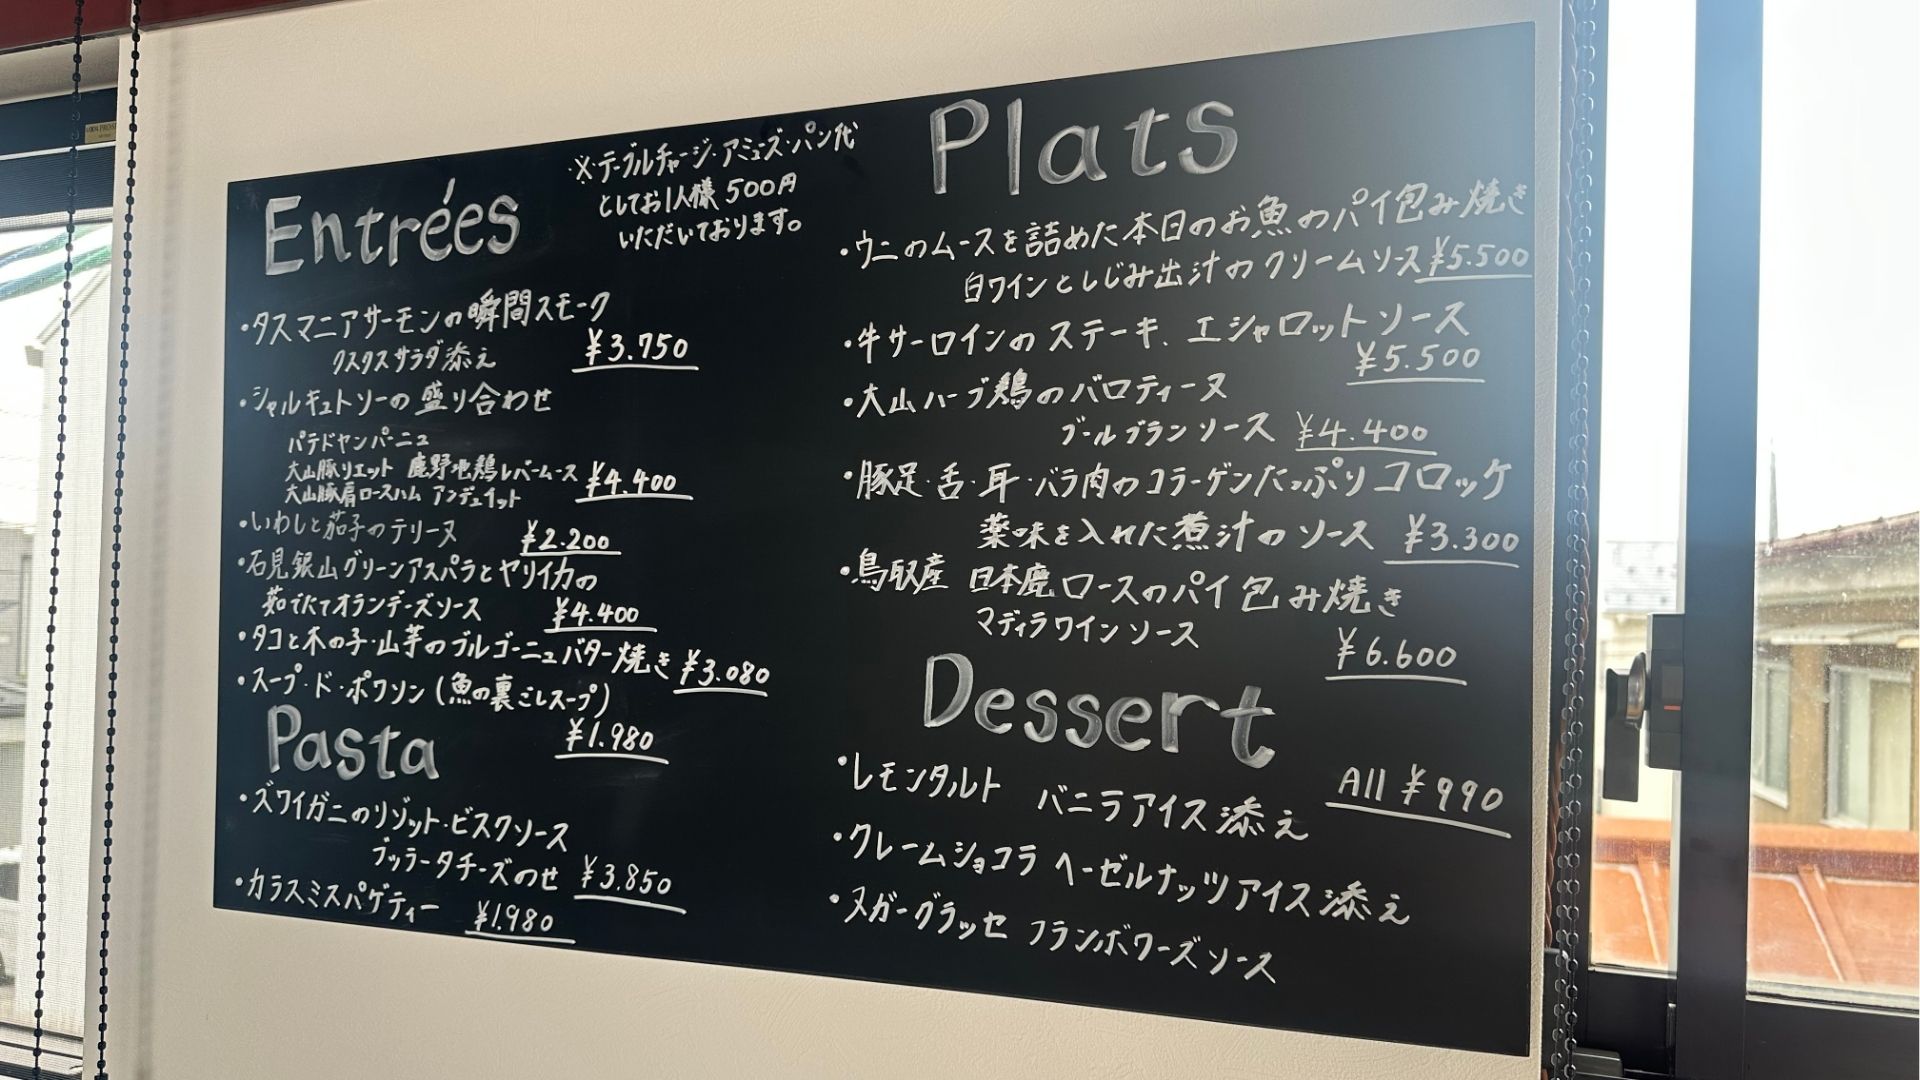 Entrées
※・テーブルチャージ・アミューズ・パン代
としてお1人様 500円
いただいております。
・タスマニアサーモンの瞬間スモーク
クスクスサラダ添え ¥3.750
・シャルキュトリーの盛り合わせ
パテドカンパーニュ
大山豚リエット 鹿野地鶏レバームース ¥4.400
大山豚肩ロースハム アンデュイエット
・いわしと茄子のテリーヌ ¥2.200
・石見銀山グリーンアスパラとヤリイカの
茹でたてオランデーズソース ¥4.400
・タコと木の子・山芋のブルゴーニュバター焼き ¥3.080
・スープ・ド・ポワソン (魚の裏ごしスープ)
¥1.980
Pasta
・ズワイガニのリゾット・ビスクソース
ブッラータチーズのせ ¥3.850
・カラスミスパゲティー ¥1.980
Plats
・ウニのムースを詰めた本日のお魚のパイ包み焼き
白ワインとしじみ出汁のクリームソース ¥5.500
・牛サーロインのステーキ、エシャロットソース
¥5.500
・大山ハーブ鶏のバロティーヌ
ブールブランソース ¥4.400
・豚足・舌・耳・バラ肉のコラーゲンたっぷりコロッケ
薬味を入れた煮汁のソース ¥3.300
・鳥取産 日本鹿ロースのパイ包み焼き
マディラワインソース
¥6.600
Dessert
All ¥990
・レモンタルト バニラアイス添え
・クレームショコラ ヘーゼルナッツアイス添え
・ヌガーグラッセ フランボワーズソース